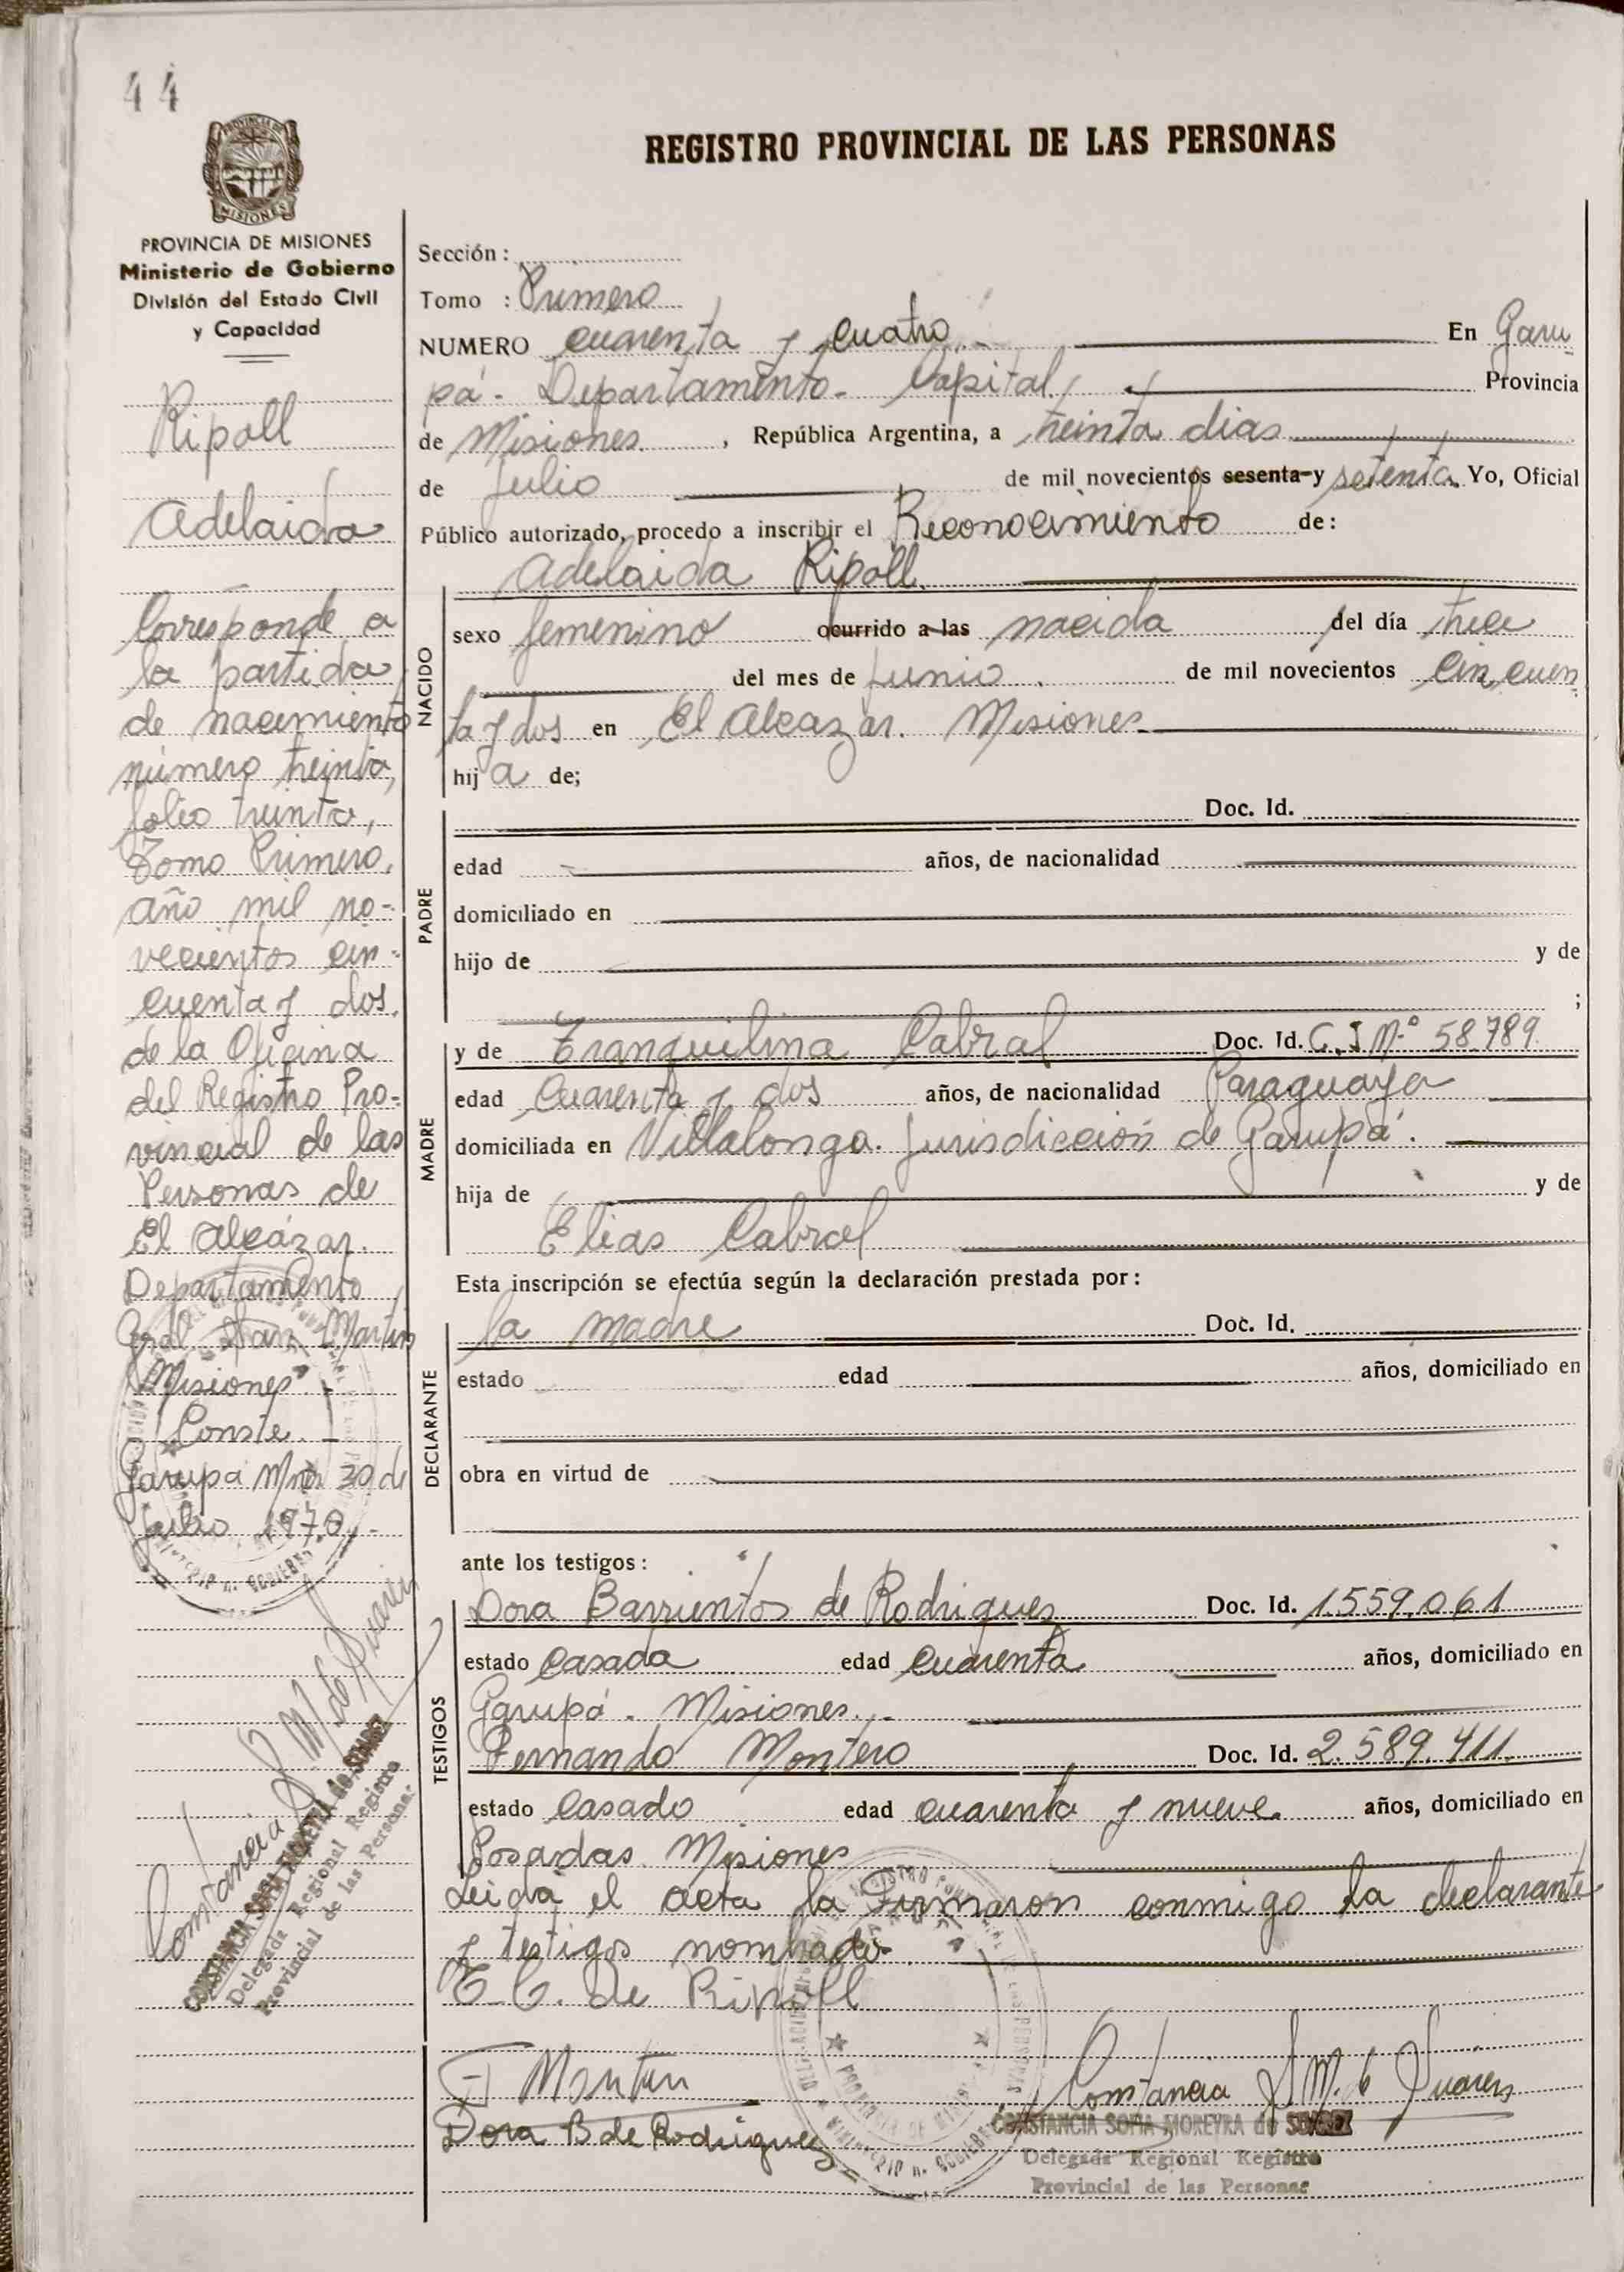 44
REGISTRO PROVINCIAL DE LAS PERSONAS
PROVINCIA DE MISIONES
Ministerio de Gobierno
División del Estado Civil
y Capacidad
Ripoll
Adelaida
Corresponde a
la partida
de nacimiento
número treinta,
folio treinta,
Tomo Primero,
año mil no-
vecientos cin-
cuenta y dos.
de la Oficina
del Registro Pro-
vincial de las
Personas de
El Alcázar.
Departamento
Gral. San Martín
Misiones.
Conste. -
Garupá Mnes 30 de
Julio 1970.-
Constancia S. M. de Suárez
CONSTANCIA SOFIA MOREYRA de SUAREZ
Delegada Regional Registro
Provincial de las Personas
Sección:
Tomo : Primero
NUMERO cuarenta y cuatro.- En Garu
pá.- Departamento.- Capital, Provincia
de Misiones. , República Argentina, a treinta dias
de Julio de mil novecientos sesenta y setenta. Yo, Oficial
Público autorizado, procedo a inscribir el Reconocimiento de:
Adelaida Ripoll.
NACIDO
sexo femenino ocurrido a las nacida del día trece
del mes de Junio. de mil novecientos cincuen
ta y dos en El Alcazar. Misiones.
hija de;
PADRE
Doc. Id.
edad años, de nacionalidad
domiciliado en
hijo de y de
;
MADRE
y de Tranquilina Cabral Doc. Id. C.I Nº 58.789
edad cuarenta y dos años, de nacionalidad Paraguaya
domiciliada en Villalonga. Jurisdicción de Garupá.
hija de y de
Elias Cabral
Esta inscripción se efectúa según la declaración prestada por:
DECLARANTE
la madre Doc. Id.
estado edad años, domiciliado en
obra en virtud de
ante los testigos:
TESTIGOS
Dora Barrientos de Rodriguez Doc. Id. 1.559.061
estado casada edad cuarenta años, domiciliado en
Garupá. Misiones.-
Fernando Montero Doc. Id. 2.589.411.
estado casado edad cuarenta y nueve. años, domiciliado en
Posadas. Misiones
Leida el acta la Firmaron conmigo la declarante
y testigos nombrados.
T. C. de Ripoll
Dora B de Rodriguez
Constancia S M. de Suárez
CONSTANCIA SOFIA MOREYRA de SUAREZ
Delegada Regional Registro
Provincial de las Personas